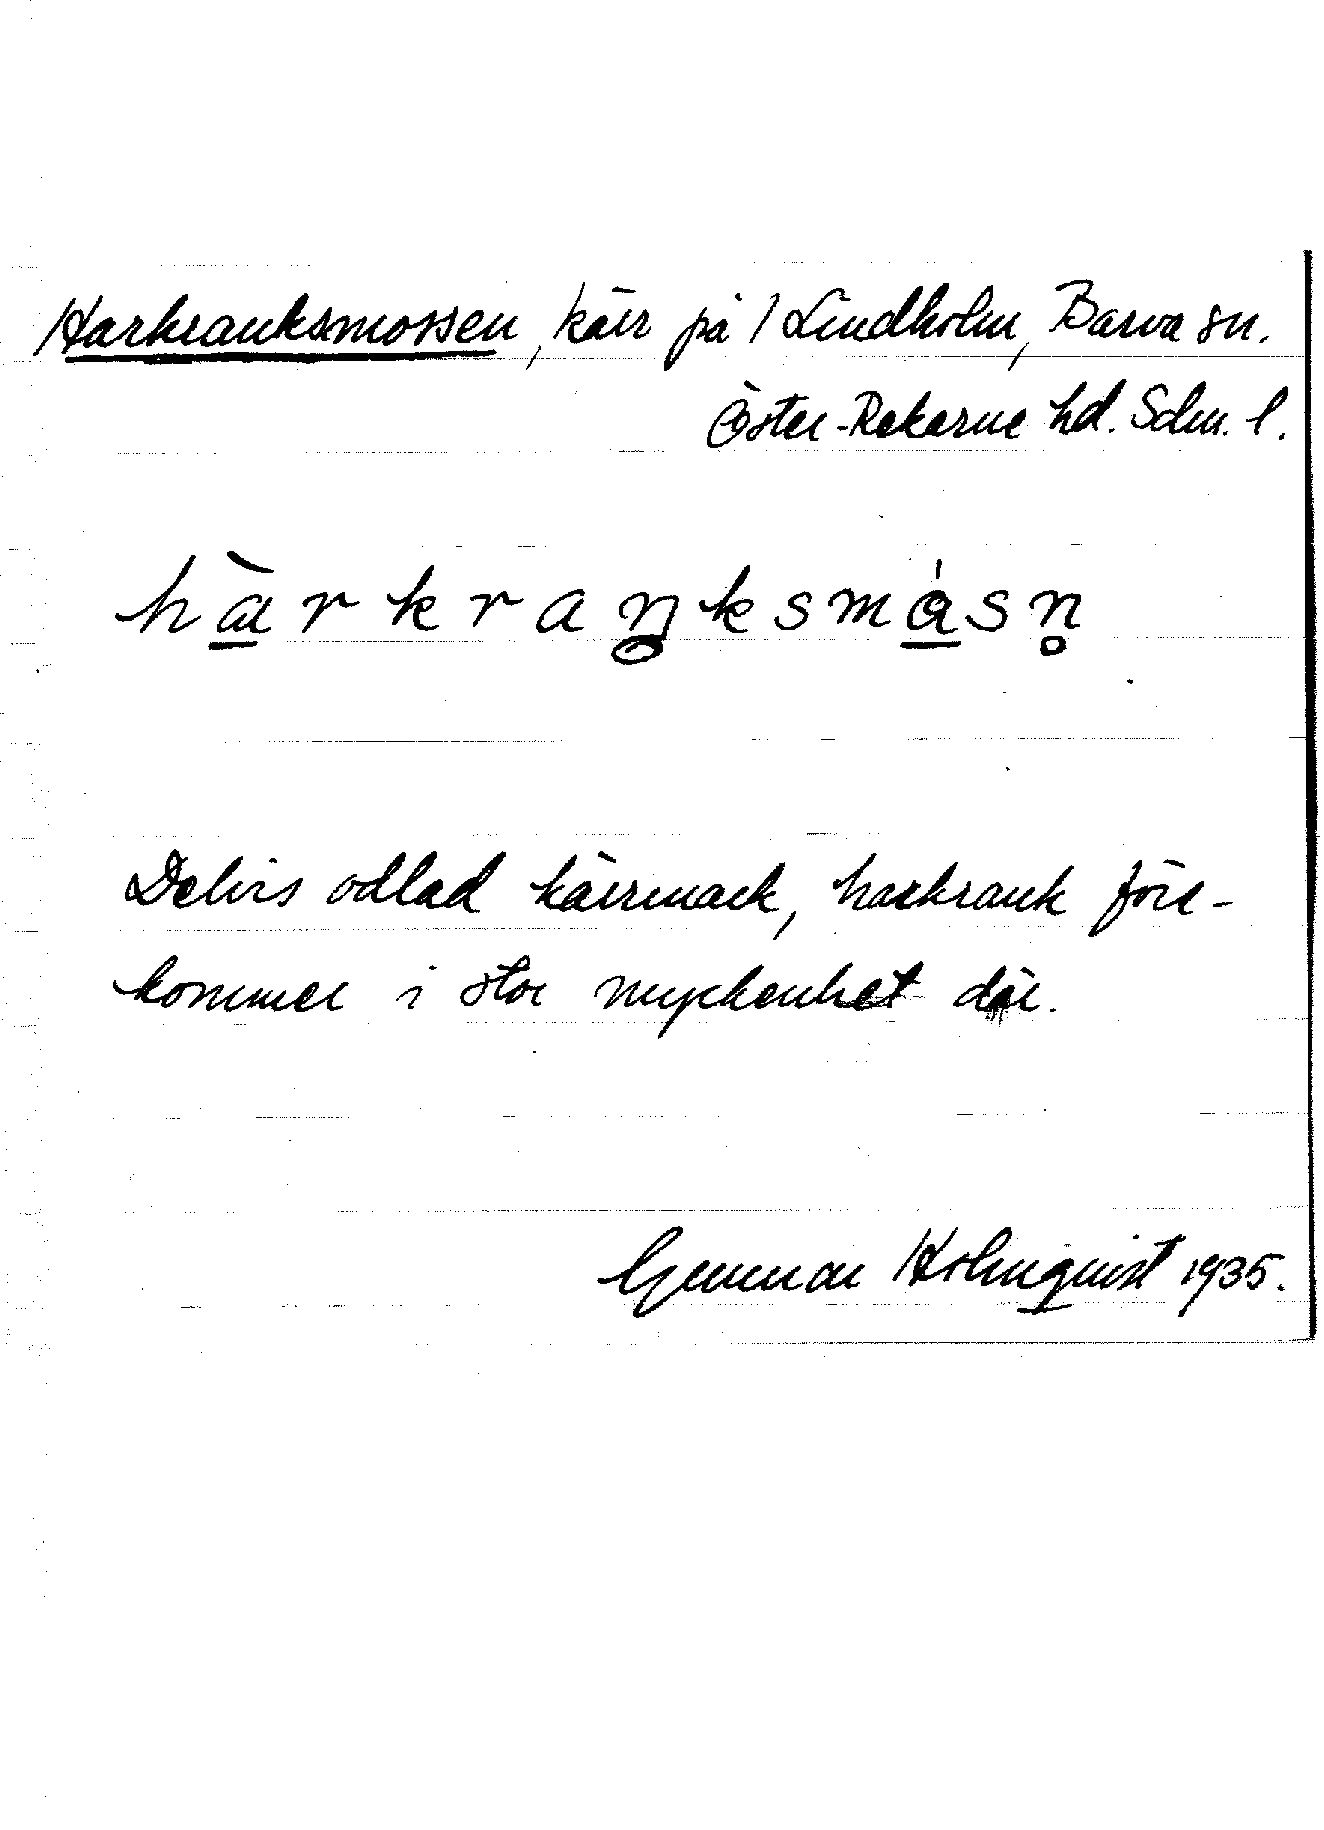 Harkranksmossen, kärr på 1 Lindholm, Barva sn.
Öster-Rekarne hd. Sdm. l.
hàrkraŋksmåsn̥
Delvis odlad kärrmark, harkrank före-
kommer i stor myckenhet där.
Gunnar Holmquist 1935.